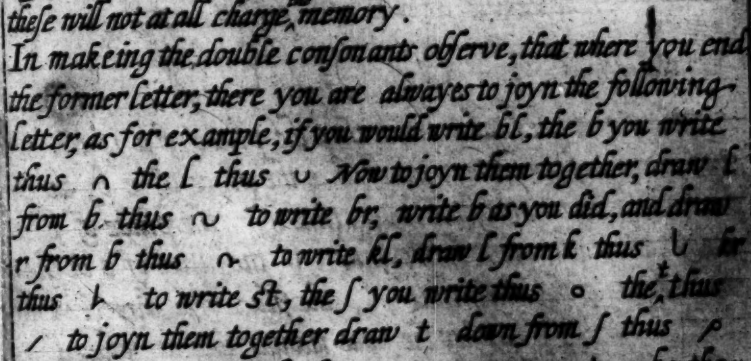 theſe will not at all charge ^ memory.
In makeing the double conſonants obſerve, that where you end
the former letter, there you are alwayes to joyn the following
letter, as for example, if you would write bl, the b you write
thus ∩ the l thus ∪ Now to joyn them together, draw l
from b thus to write br, write b as you did, and draw
r from b thus to write kl, draw l from k thus kr
thus to write ſt, the ſ you write thus o the ^t thus
/ to joyn them together draw t down from ſ thus